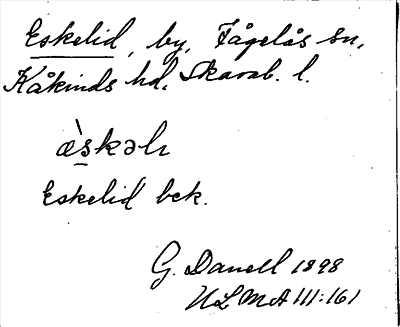 Eskelid, by, Fågelås sn,
Kåkinds hd, Skarab. l.
æ̀skəlı
Eskelid bek.
G. Danell 1898
ULMA 111:161